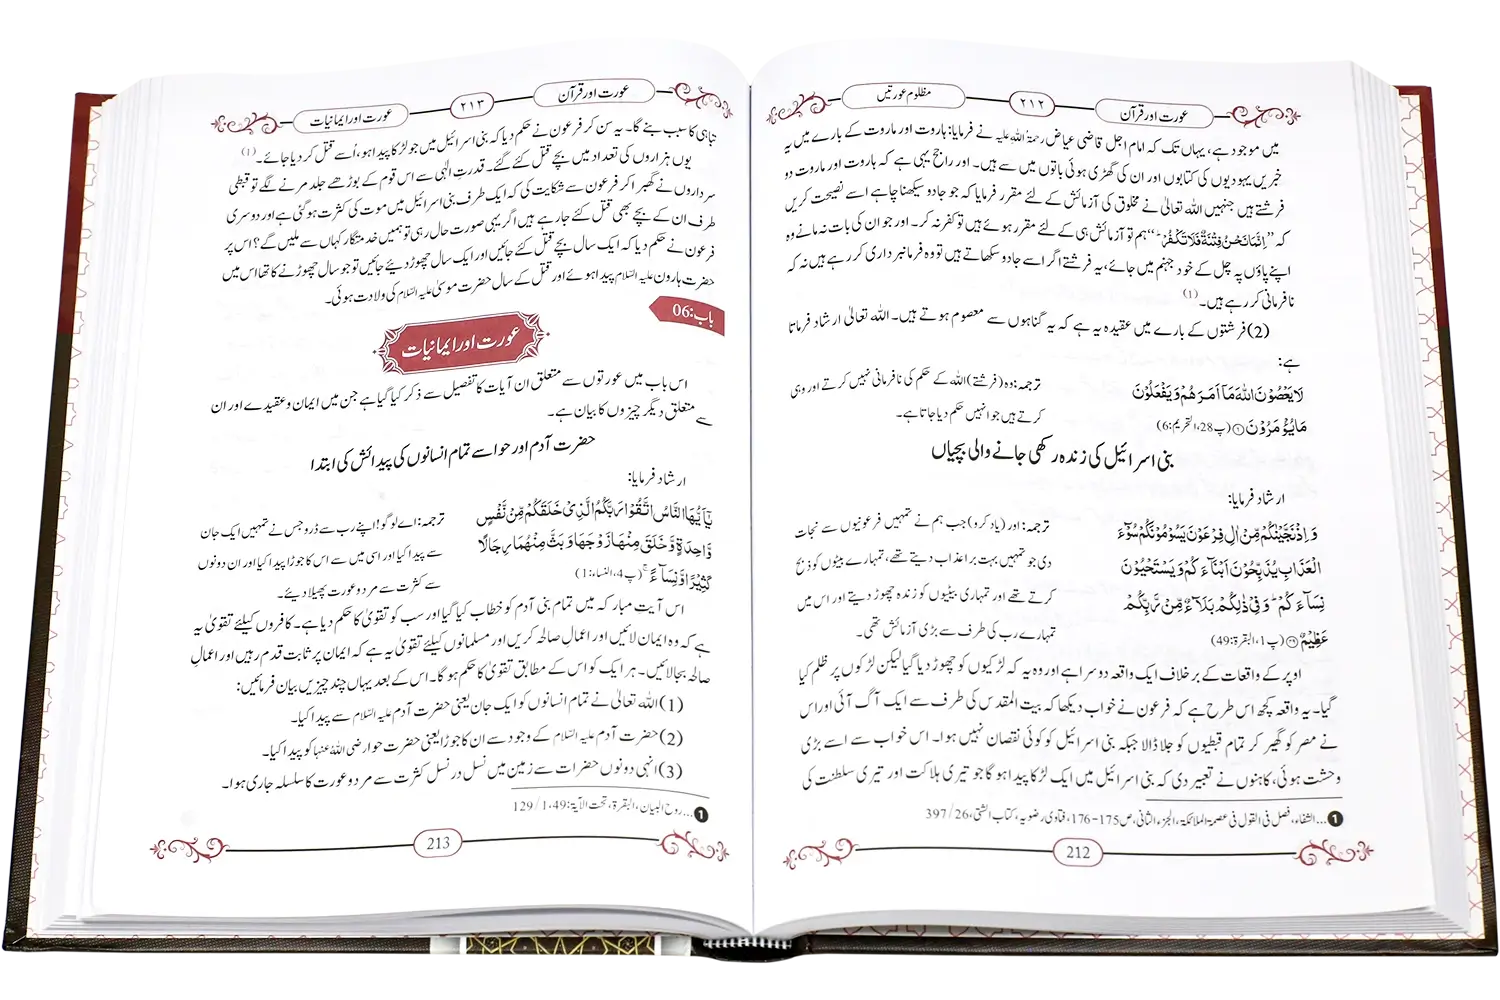 عورت اور قرآن
۲۱۲
مظلوم عورتیں
میں موجود ہے، یہاں تک کہ امام اجل قاضی عیاض رحمۃ اللہ علیہ نے فرمایا: ہاروت اور ماروت کے بارے میں یہ
خبریں یہودیوں کی کتابوں اور ان کی گھڑی ہوئی باتوں میں سے ہیں۔ اور راجح یہی ہے کہ ہاروت اور ماروت دو
فرشتے ہیں جنہیں اللہ تعالیٰ نے مخلوق کی آزمائش کے لئے مقرر فرمایا کہ جو جادو سیکھنا چاہے اسے نصیحت کریں
کہ ”اِنَّمَا نَحْنُ فِتْنَةٌ فَلَا تَكْفُرْ ؕ“ ہم تو آزمائش ہی کے لئے مقرر ہوئے ہیں تو کفر نہ کر۔ اور جو ان کی بات نہ مانے وہ
اپنے پاؤں پہ چل کے خود جہنم میں جائے، یہ فرشتے اگر اسے جادو سکھاتے ہیں تو وہ فرمانبرداری کر رہے ہیں نہ کہ
نافرمانی کر رہے ہیں۔(1)
(2) فرشتوں کے بارے میں عقیدہ یہ ہے کہ یہ گناہوں سے معصوم ہوتے ہیں۔ اللہ تعالیٰ ارشاد فرماتا
ہے:
لَا يَعْصُوْنَ اللّٰهَ مَاۤ اَمَرَهُمْ وَ يَفْعَلُوْنَ
مَا يُؤْمَرُوْنَ ۝۶ (پ28، التحریم:6)
ترجمہ: وہ (فرشتے) اللہ کے حکم کی نافرمانی نہیں کرتے اور وہی
کرتے ہیں جو انہیں حکم دیا جاتا ہے۔
بنی اسرائیل کی زندہ رکھی جانے والی بچیاں
ارشاد فرمایا:
وَ اِذْ نَجَّيْنٰكُمْ مِّنْ اٰلِ فِرْعَوْنَ يَسُوْمُوْنَكُمْ سُوْٓءَ
الْعَذَابِ يُذَبِّحُوْنَ اَبْنَآءَكُمْ وَ يَسْتَحْيُوْنَ
نِسَآءَكُمْ ؕ وَ فِيْ ذٰلِكُمْ بَلَآءٌ مِّنْ رَّبِّكُمْ
عَظِيْمٌ ۝۴۹ (پ1، البقرۃ:49)
ترجمہ: اور (یاد کرو) جب ہم نے تمہیں فرعونیوں سے نجات
دی جو تمہیں بہت برا عذاب دیتے تھے، تمہارے بیٹوں کو ذبح
کرتے تھے اور تمہاری بیٹیوں کو زندہ چھوڑ دیتے اور اس میں
تمہارے رب کی طرف سے بڑی آزمائش تھی۔
اوپر کے واقعات کے برخلاف ایک واقعہ دوسرا ہے اور وہ یہ کہ لڑکیوں کو چھوڑ دیا گیا لیکن لڑکوں پر ظلم کیا
گیا۔ یہ واقعہ کچھ اس طرح ہے کہ فرعون نے خواب دیکھا کہ بیت المقدس کی طرف سے ایک آگ آئی اور اس
نے مصر کو گھیر کر تمام قبطیوں کو جلا ڈالا جبکہ بنی اسرائیل کو کوئی نقصان نہیں ہوا۔ اس خواب سے اسے بڑی
وحشت ہوئی، کاہنوں نے تعبیر دی کہ بنی اسرائیل میں ایک لڑکا پیدا ہو گا جو تیری ہلاکت اور تیری سلطنت کی
❶...الشفاء، فصل فی القول فی عصمۃ الملائکۃ، الجزء الثانی، ص175-176، فتاوی رضویہ، کتاب الشتی، 26/397
212
عورت اور قرآن
۲۱۳
عورت اور ایمانیات
تباہی کا سبب بنے گا۔ یہ سن کر فرعون نے حکم دیا کہ بنی اسرائیل میں جو لڑکا پیدا ہو، اُسے قتل کر دیا جائے۔(1)
یوں ہزاروں کی تعداد میں بچے قتل کئے گئے۔ قدرتِ الٰہی سے اس قوم کے بوڑھے جلد مرنے لگے تو قبطی
سرداروں نے گھبرا کر فرعون سے شکایت کی کہ ایک طرف بنی اسرائیل میں موت کی کثرت ہو گئی ہے اور دوسری
طرف ان کے بچے بھی قتل کئے جا رہے ہیں اگر یہی صورت حال رہی تو ہمیں خدمتگار کہاں سے ملیں گے؟ اس پر
فرعون نے حکم دیا کہ ایک سال بچے قتل کئے جائیں اور ایک سال چھوڑ دیئے جائیں تو جو سال چھوڑنے کا تھا اس میں
حضرت ہارون علیہ السّلام پیدا ہوئے اور قتل کے سال حضرت موسیٰ علیہ السّلام کی ولادت ہوئی۔
باب:06
عورت اور ایمانیات
اس باب میں عورتوں سے متعلق ان آیات کا تفصیل سے ذکر کیا گیا ہے جن میں ایمان و عقیدے اور ان
سے متعلق دیگر چیزوں کا بیان ہے۔
حضرت آدم اور حوا سے تمام انسانوں کی پیدائش کی ابتدا
ارشاد فرمایا:
يٰۤاَيُّهَا النَّاسُ اتَّقُوْا رَبَّكُمُ الَّذِيْ خَلَقَكُمْ مِّنْ نَّفْسٍ
وَّاحِدَةٍ وَّ خَلَقَ مِنْهَا زَوْجَهَا وَ بَثَّ مِنْهُمَا رِجَالًا
كَثِيْرًا وَّ نِسَآءً ۚ (پ4، النساء:1)
ترجمہ: اے لوگو! اپنے رب سے ڈرو جس نے تمہیں ایک جان
سے پیدا کیا اور اسی میں سے اس کا جوڑا پیدا کیا اور ان دونوں
سے کثرت سے مرد و عورت پھیلا دیئے۔
اس آیتِ مبارکہ میں تمام بنی آدم کو خطاب کیا گیا اور سب کو تقویٰ کا حکم دیا ہے۔ کافروں کیلئے تقویٰ یہ
ہے کہ وہ ایمان لائیں اور اعمالِ صالحہ کریں اور مسلمانوں کیلئے تقویٰ یہ ہے کہ ایمان پر ثابت قدم رہیں اور اعمالِ
صالحہ بجالائیں۔ ہر ایک کو اس کے مطابق تقویٰ کا حکم ہو گا۔ اس کے بعد یہاں چند چیزیں بیان فرمائیں:
(1) اللہ تعالیٰ نے تمام انسانوں کو ایک جان یعنی حضرت آدم علیہ السّلام سے پیدا کیا۔
(2) حضرت آدم علیہ السّلام کے وجود سے ان کا جوڑا یعنی حضرت حوا رضی اللہ عنہا کو پیدا کیا۔
(3) انہی دونوں حضرات سے زمین میں نسل در نسل کثرت سے مرد و عورت کا سلسلہ جاری ہوا۔
❶...روح البیان، البقرۃ، تحت الآیۃ:49، 1/129
213